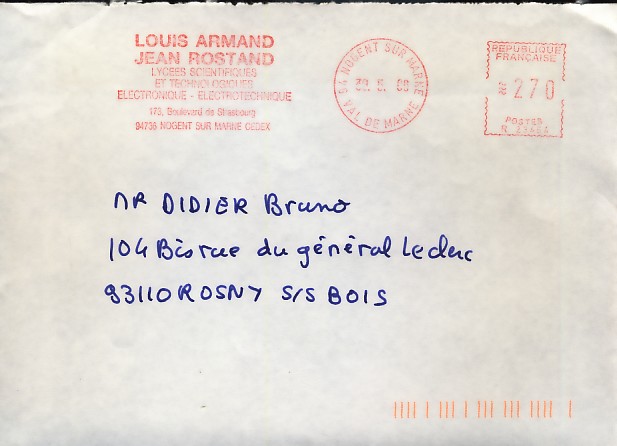 LOUIS ARMAND
JEAN ROSTAND
LYCEES SCIENTIFIQUES
ET TECHNOLOGIQUES
ELECTRONIQUE - ELECTROTECHNIQUE
173, Boulevard de Strasbourg
94736 NOGENT SUR MARNE CEDEX
94 NOGENT SUR MARNE
VAL DE MARNE
REPUBLIQUE
FRANCAISE
270
POSTES
MR DIDIER Bruno
104 Bis rue du général Leclerc
93110 ROSNY S/S BOIS